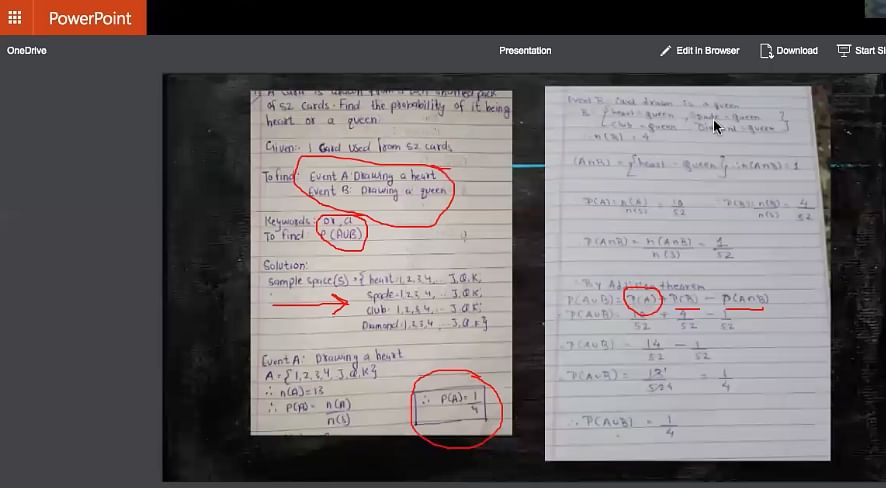 PowerPoint
OneDrive
Presentation
Edit in Browser
Download
Start Sl
of 52 cards. Find the probability of it being
heart or a queen.
Given:- 1 card used from 52 cards
To find: Event A: Drawing a heart
Event B: Drawing a queen
Keywords: or, a
To find P(A∪B)
Solution:
Sample space(S) = { heart-1,2,3,4, .. J,Q,K,
Spade-1,2,3,4, .. J,Q,K;
Club- 1,2,3,4,.. J,Q,K;
Diamond-1,2,3,4, ..J,Q,K}
Event A: Drawing a heart
A = {1,2,3,4, J,Q,K}
∴ n(A)=13
∴ P(A)= n(A)
n(S)
∴ P(A)= 1
4
Event B: Card drawn is a queen
B {heart-queen, Spade-queen
Club-queen Diamond-queen}
∴ n(B)=4
(A∩B) = {heart-queen} ∴n(A∩B)=1
P(A)= n(A) =
n(S) 52
P(B)= n(B) = 4
n(S) 52
P(A∩B) = n(A∩B) = 1
n(S) 52
By Addition theorem
P(A∪B)= P(A)+ P(B) - P(A∩B)
P(A∪B)= + 4 - 1
52 52 52
P(A∪B) = 14 - 1
52 52
P(A∪B) = = 1
4
∴ P(A∪B) = 1
4